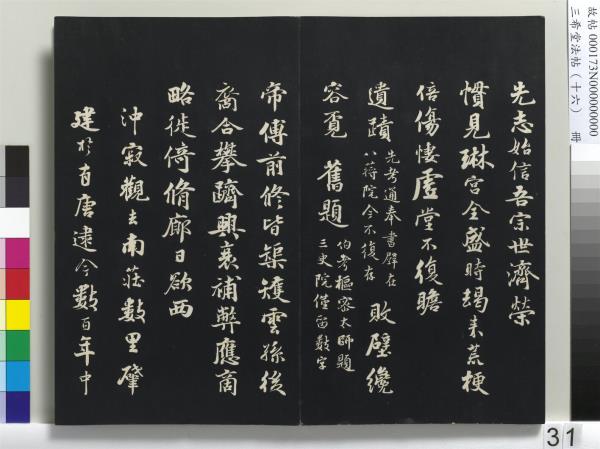 先志始信吾宗世濟榮
慣見琳宮全盛時朅来荒梗
倍傷悽虛堂不復瞻
遺蹟先考通奉書壁在八蔣院今不復存敗壁纔
容覔舊題伯考樞密太師題三吏院僅留數字
帝傅前修皆榘矱雲孫後
裔合攀躋興衰補弊應商
略徙倚脩廊日欲西
沖寂觀去南莊數里肇
建於有唐逮今數百年中
故帖 000173N000000000
三希堂法帖（十六） 冊
31